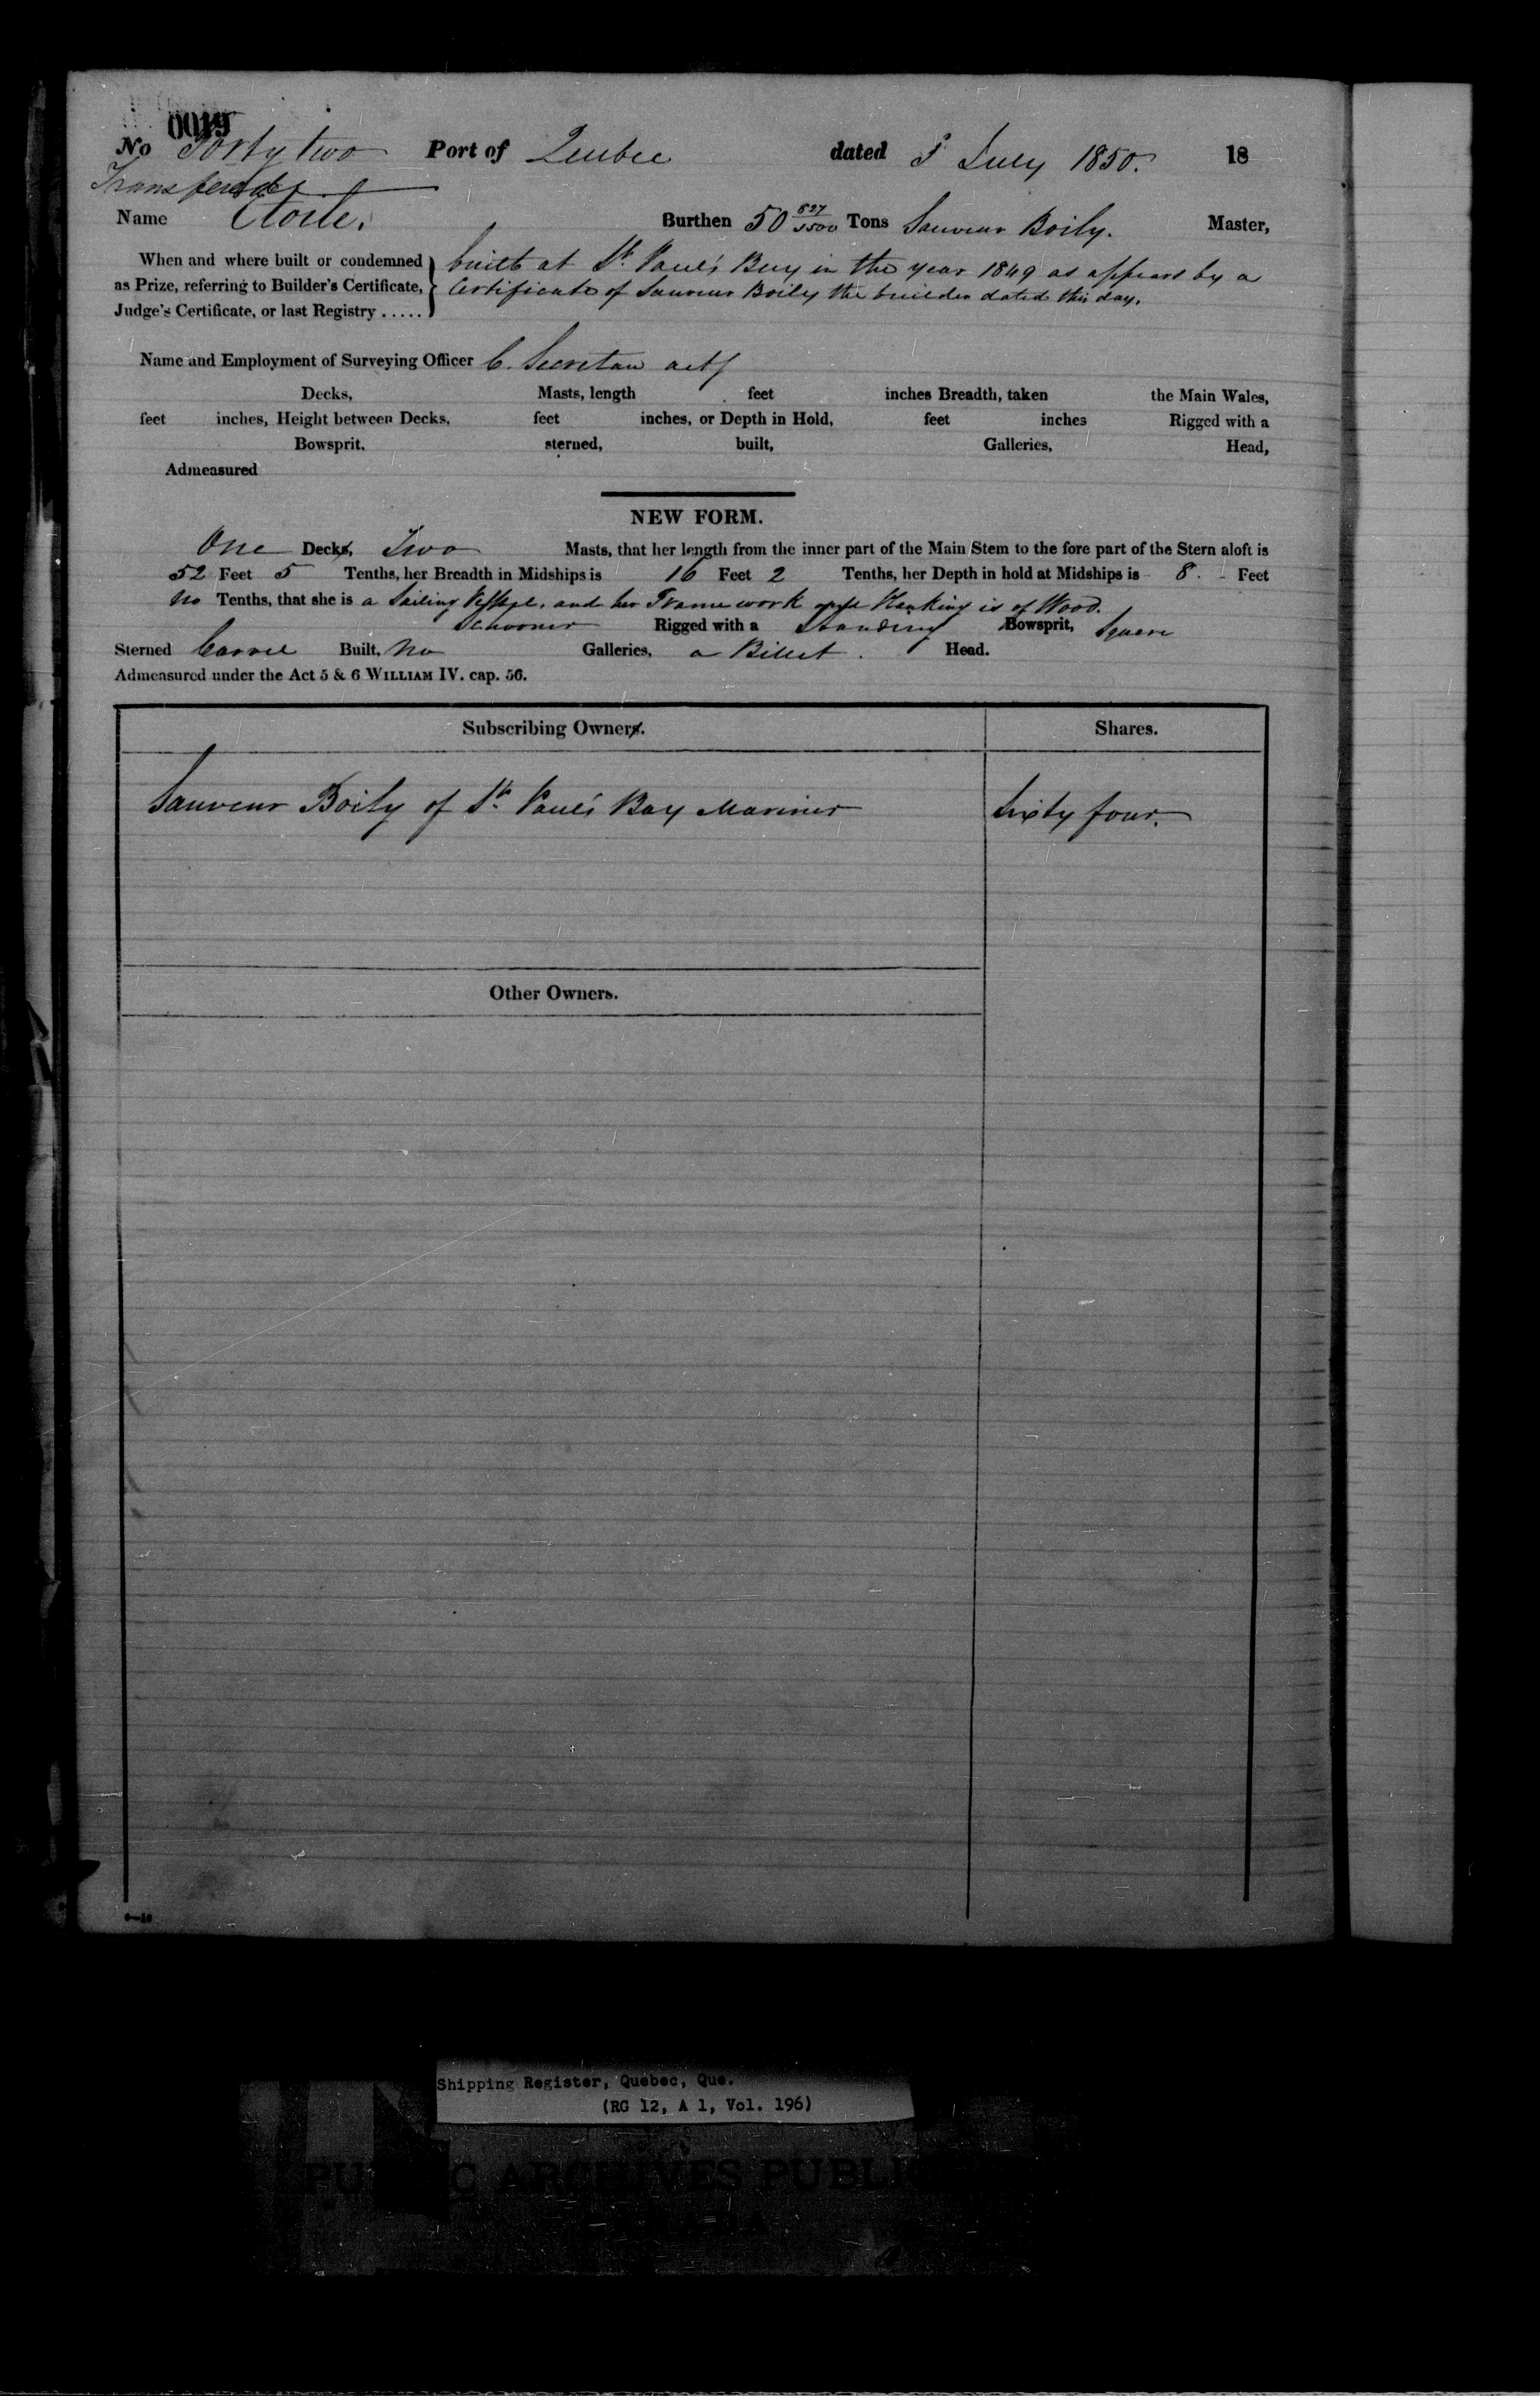 0019
No Forty two Port of Quebec dated 5 July 1850. 18
Transferred
Name Etoile. Burthen 50 827/3500 Tons Sauveur Boily. Master,
When and where built or condemned as Prize, referring to Builder's Certificate, Judge's Certificate, or last Registry .....
built at St. Paul's Bay in the year 1849 as appears by a
Certificate of Sauveur Boily the builder dated this day.
Name and Employment of Surveying Officer C. Secretan act
Decks, Masts, length feet inches Breadth, taken the Main Wales,
feet inches, Height between Decks, feet inches, or Depth in Hold, feet inches Rigged with a
Bowsprit, sterned, built, Galleries, Head,
Admeasured
NEW FORM.
One Decks, Two Masts, that her length from the inner part of the Main Stem to the fore part of the Stern aloft is
52 Feet 5 Tenths, her Breadth in Midships is 16 Feet 2 Tenths, her Depth in hold at Midships is 8 Feet
no Tenths, that she is a Sailing Vessel, and her Frame work and Planking is of Wood.
Schooner Rigged with a Standing Bowsprit, Square
Sterned Carvel Built, No Galleries, a Billet Head.
Admeasured under the Act 5 & 6 WILLIAM IV. cap. 56.
Subscribing Owners. Shares.
Sauveur Boily of St. Paul's Bay Mariner Sixty four.
Other Owners.
Shipping Register, Quebec, Que.
(RG 12, A 1, Vol. 196)
PUBLIC ARCHIVES PUBLI